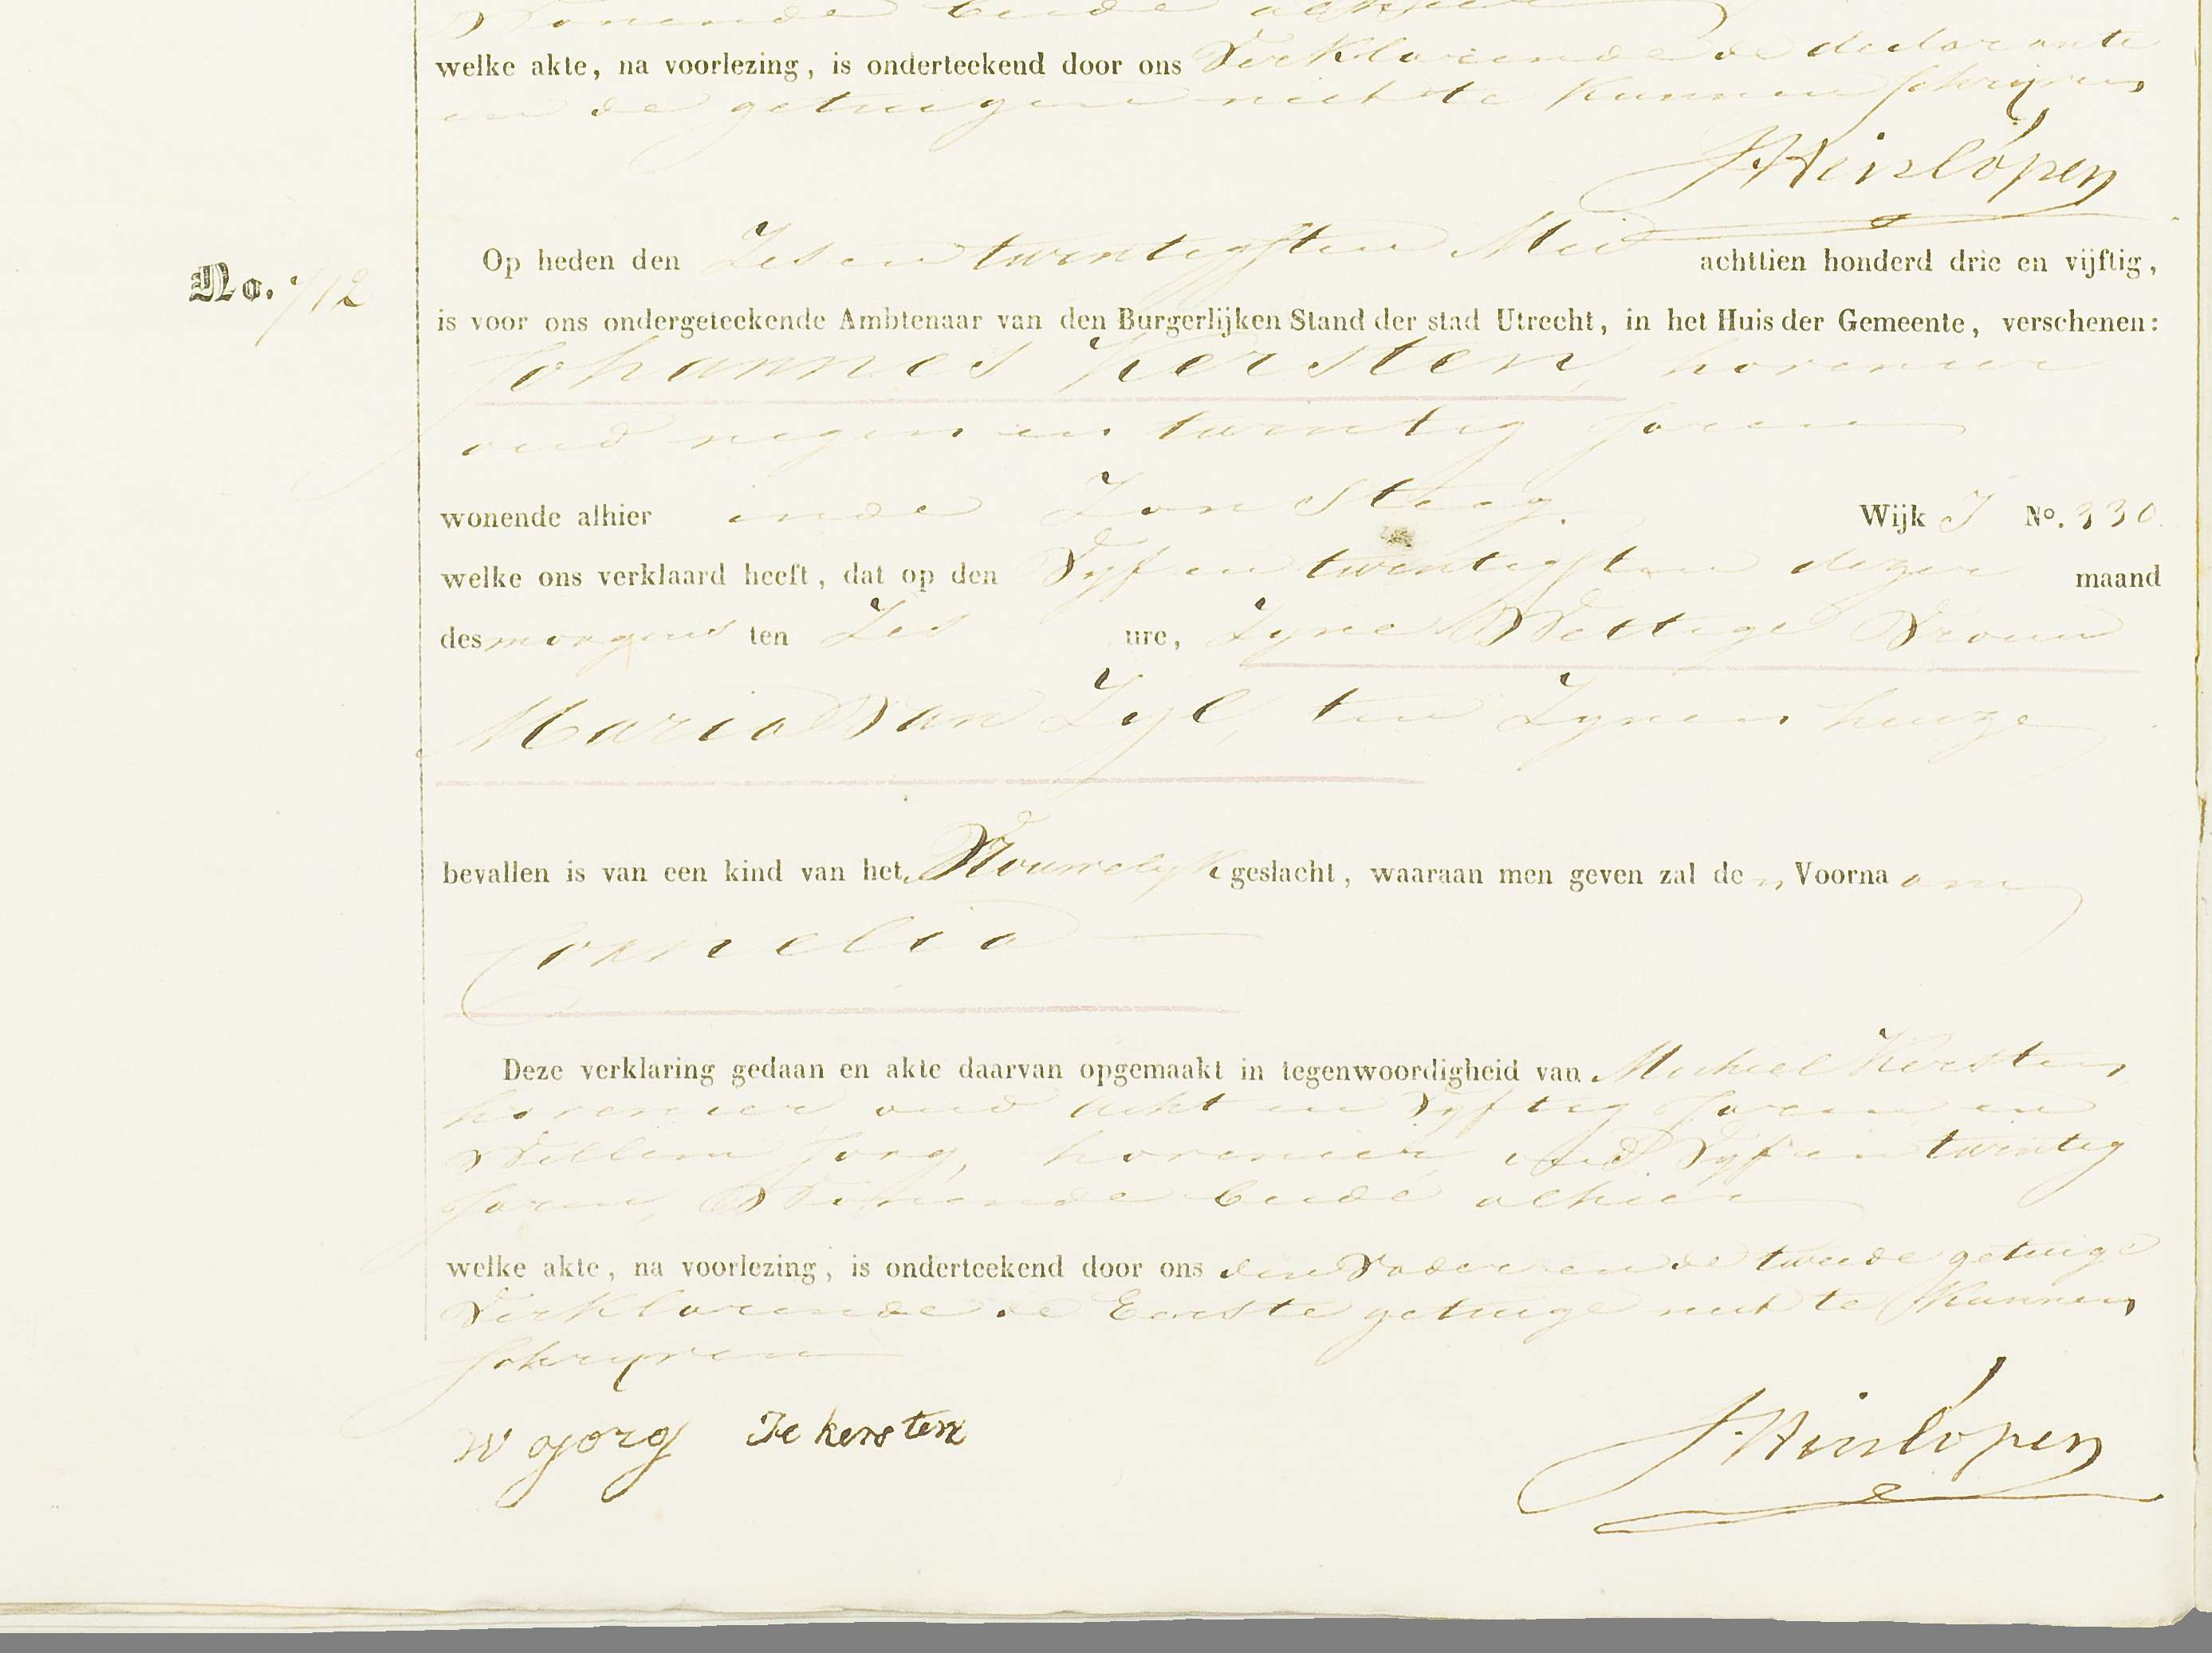 Wonende beide alhier
welke akte, na voorlezing, is onderteekend door ons Verklarende de declarante
en de getuigen niet te kunnen schrijven
JHinlópen
Op heden den Zes en twintigsten Mei achttien honderd drie en vijftig,
No. 712
is voor ons ondergeteekende Ambtenaar van den Burgerlijken Stand der stad Utrecht, in het Huis der Gemeente, verschenen:
Johannes Kersten, hovenier
oud negen en twintig Jaren
wonende alhier in de Zon Steeg. Wijk I No. 330.
welke ons verklaard heeft, dat op den Vyf en twintigsten dezer maand
des morgens ten Zes ure, Zyne Wettige Vrouw
Maria Van Zyl, ten Zynen huize
bevallen is van een kind van het Vrouwelyk geslacht, waaraan men geven zal de n Voorna am
Cornelia
Deze verklaring gedaan en akte daarvan opgemaakt in tegenwoordigheid van Michiel Kersten,
hovenier oud acht en Vyftig Jaren en
Willem Jorg, hovenier, oud Vyf en twintig
Jaren, Wonende beide alhier
welke akte, na voorlezing, is onderteekend door ons den Vader en de tweede getuige
Verklarende de Eerste getuige niet te kunnen
schryven
W gorg Je kersten JHinlópen